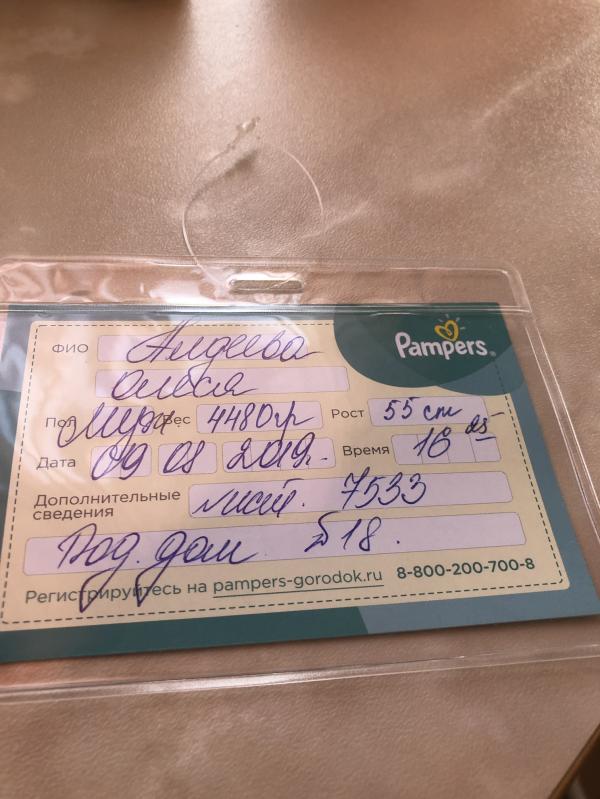 Pampers®
ФИО Андеева
Олеся
Пол Муж Вес 4480гр Рост 55 cm
Дата 09 08 2019г. Время 16 25
Дополнительные сведения лист. 7533
Род. дом 18.
Регистрируйтесь на pampers-gorodok.ru 8-800-200-700-8